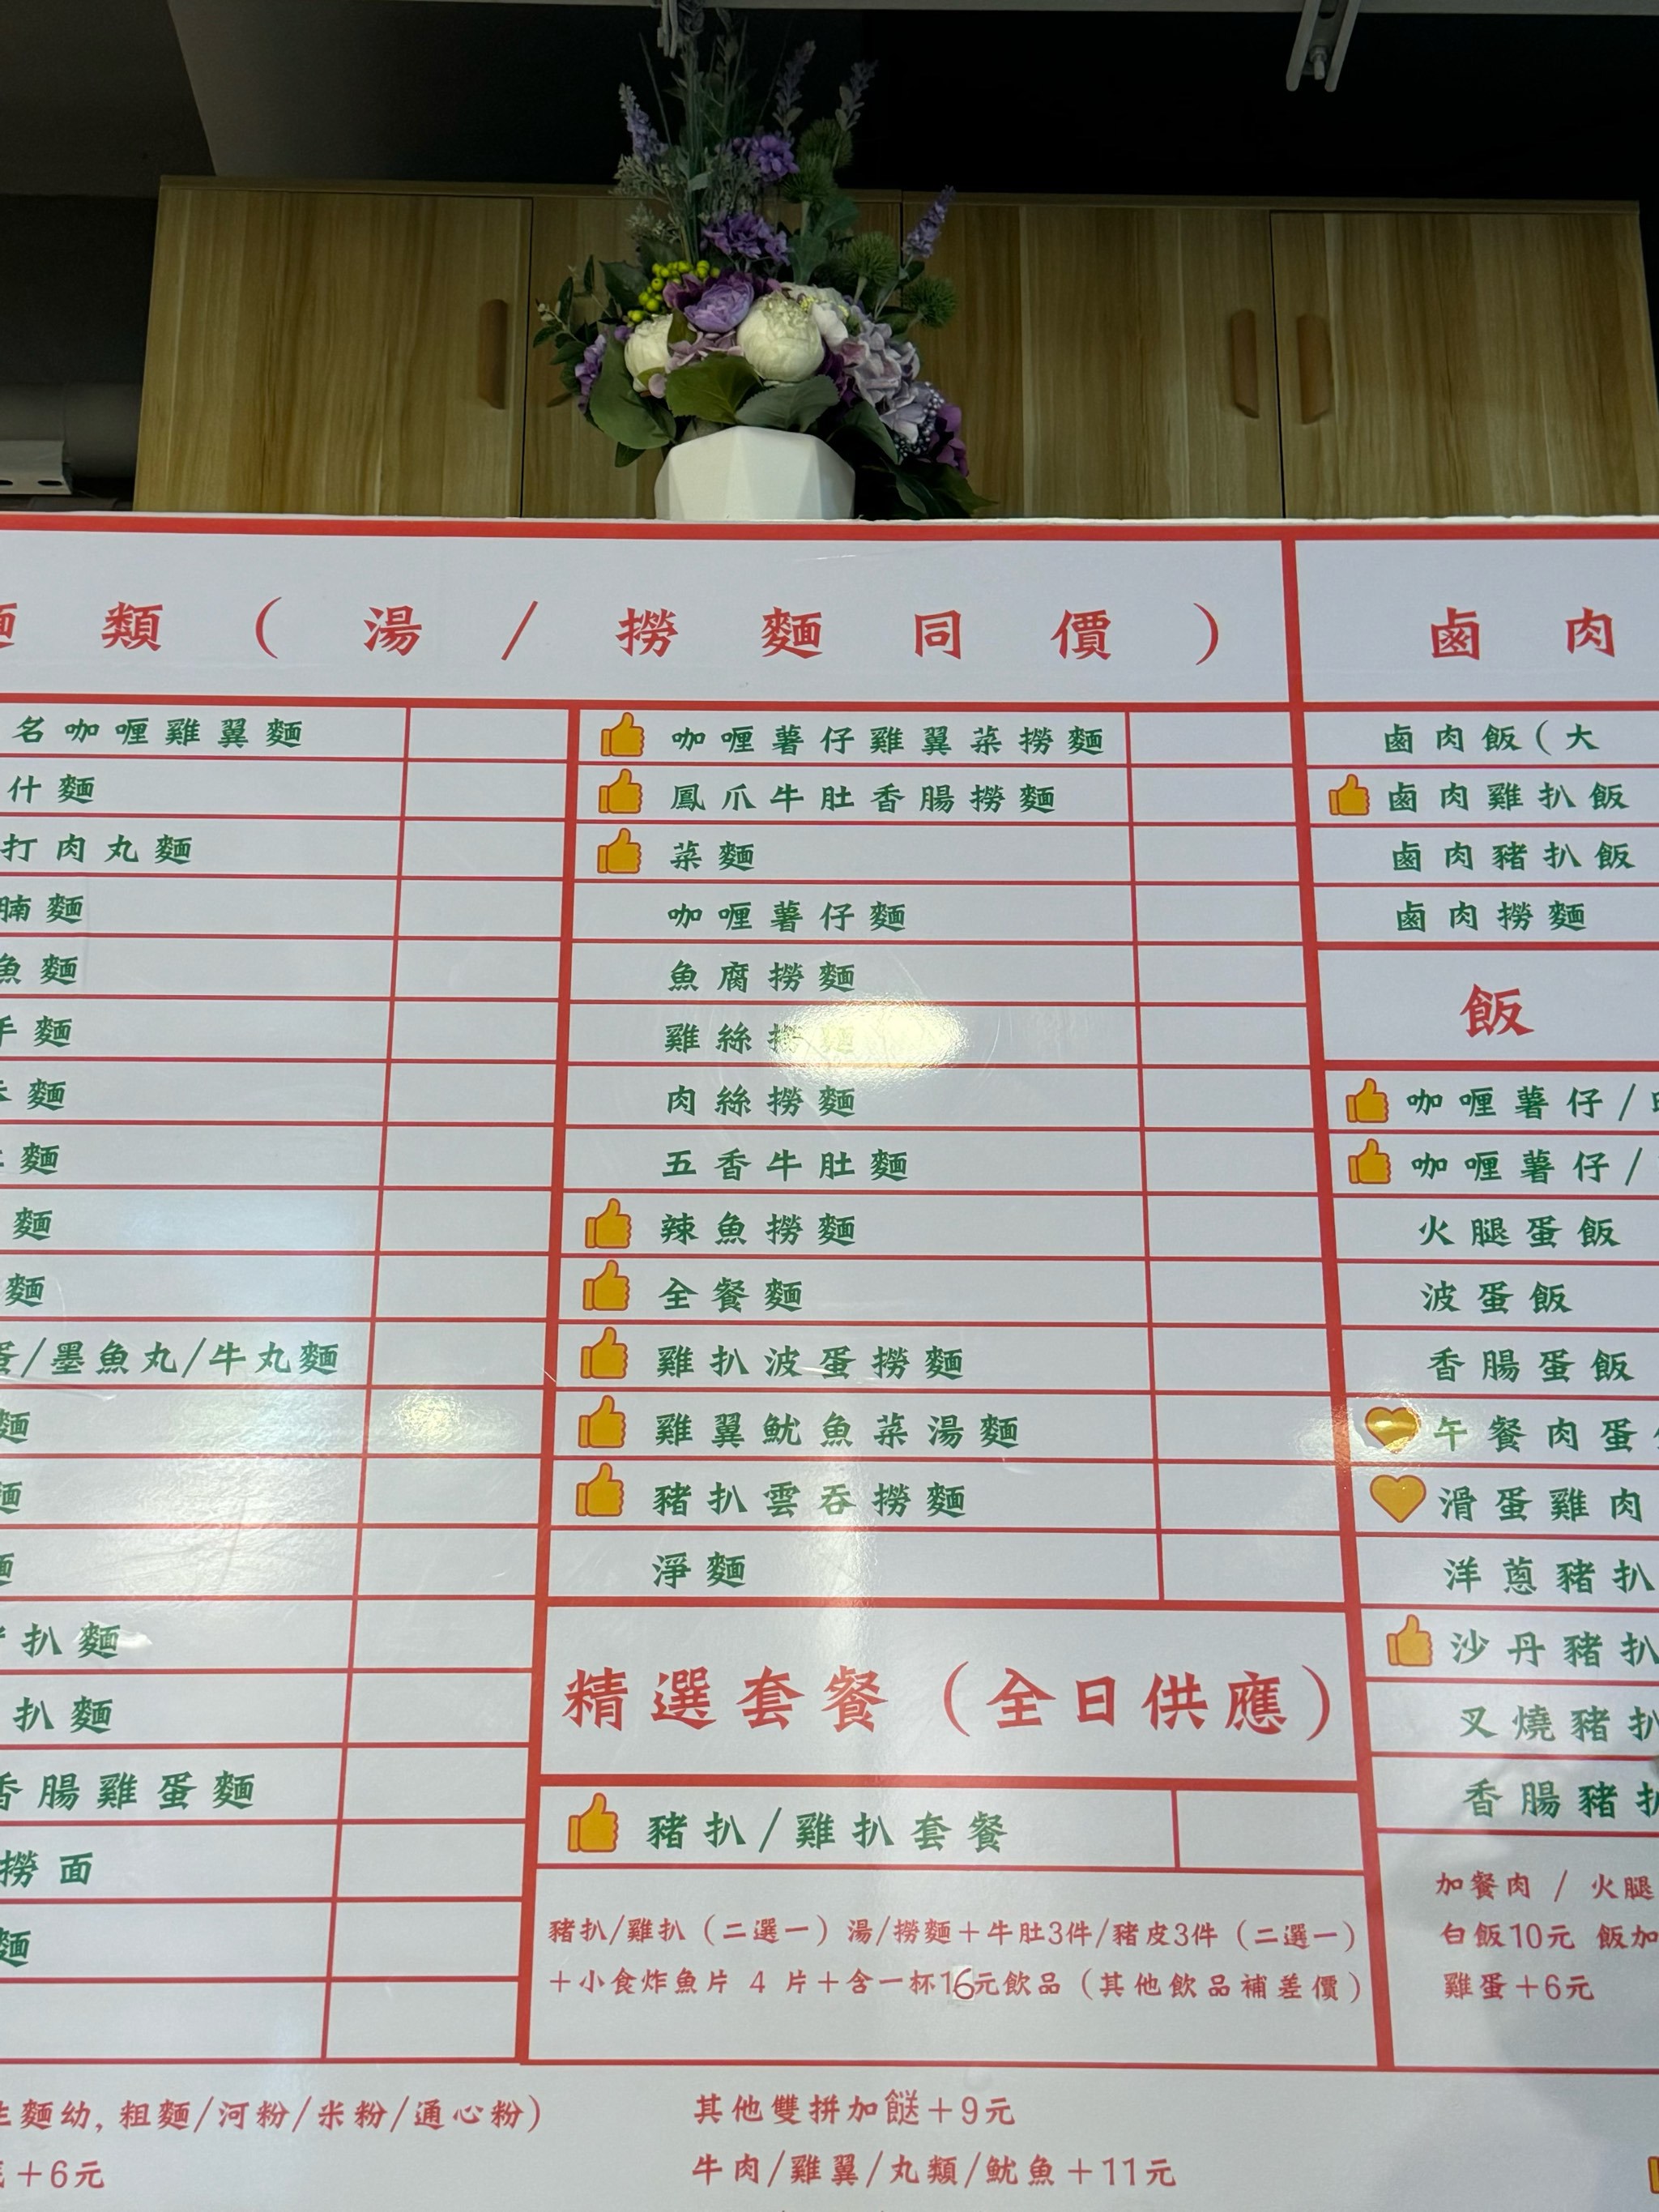 類（湯/撈麵同價）
名咖喱雞翼麵
什麵
打肉丸麵
腩麵
魚麵
手麵
麵
麵
麵
麵
蛋/墨魚丸/牛丸麵
麵
麵
麵
扒麵
扒麵
香腸雞蛋麵
撈面
麵
咖喱薯仔雞翼菜撈麵
鳳爪牛肚香腸撈麵
菜麵
咖喱薯仔麵
魚腐撈麵
雞絲撈麵
肉絲撈麵
五香牛肚麵
辣魚撈麵
全餐麵
雞扒波蛋撈麵
雞翼魷魚菜湯麵
豬扒雲吞撈麵
淨麵
精選套餐（全日供應）
豬扒/雞扒套餐
豬扒/雞扒（二選一）湯/撈麵＋牛肚3件/豬皮3件（二選一）
＋小食炸魚片 4 片＋含一杯16元飲品（其他飲品補差價）
鹵肉
鹵肉飯（大
鹵肉雞扒飯
鹵肉豬扒飯
鹵肉撈麵
飯
咖喱薯仔/
咖喱薯仔/
火腿蛋飯
波蛋飯
香腸蛋飯
午餐肉蛋
滑蛋雞肉
洋蔥豬扒
沙丹豬扒
叉燒豬扒
香腸豬扒
加餐肉 / 火腿
白飯10元 飯加
雞蛋＋6元
生麵幼,粗麵/河粉/米粉/通心粉）
＋6元
其他雙拼加餸＋9元
牛肉/雞翼/丸類/魷魚＋11元